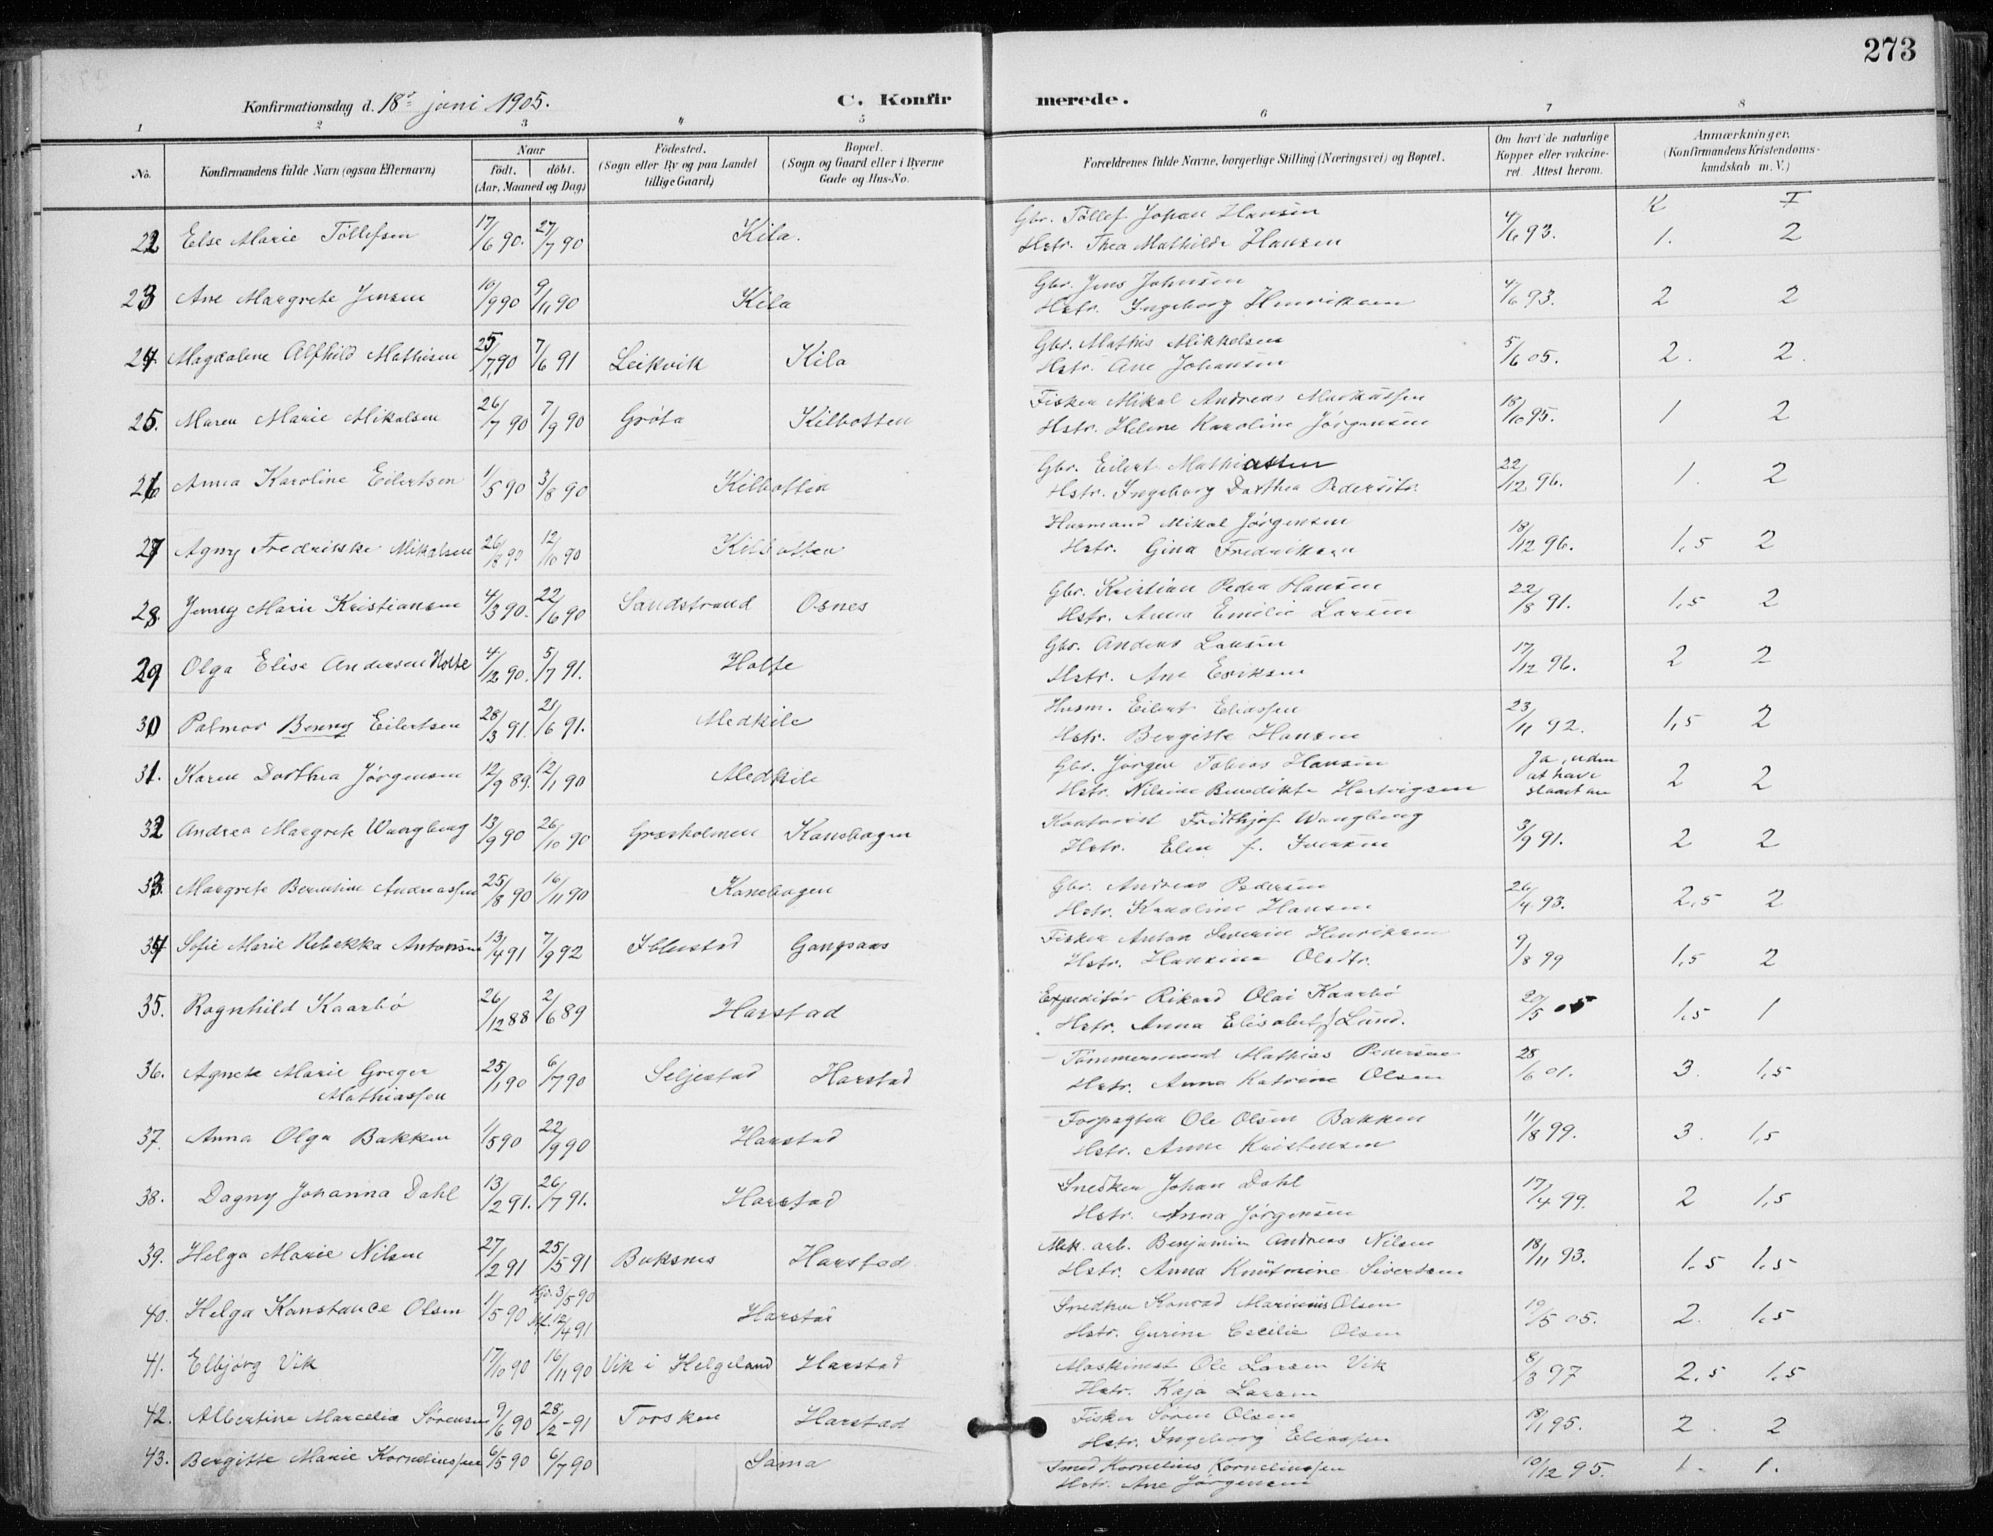 273
Konfirmationsdag d. 18de juni 1905.
C. Konfirmerede.
1 2 3 4 5 6 7 8
No. Konfirmandens fulde Navn (ogsaa Efternavn) Naar født. døbt. (Aar, Maaned og Dag) Fødested. (Sogn eller By og paa Landet tillige Gaard) Bopæl. (Sogn og Gaard eller i Byerne Gade og Hus-No. Forældrenes fulde Navne, borgerlige Stilling (Næringsvei) og Bopæl. Om havt de naturlige Kopper eller vakcineret. Attest herom. Anmærkninger. (Konfirmandens Kristendomskundskab m. V.)
K F
Gbr. Tollef Johan Hansen
22 Else Marie Tollefsen 17/6 90. 27/7 90 Kila. Hstr. Thea Mathilde Hansen 4/6 93. 1. 2
Gbr. Jens Johnsen
23 Ane Margrete Jensen 10/9 90 9/11 90 Kila Hstr. Ingeborg Henriksen 4/6 93. 2 2
Gbr. Mathis Mikkelsen
24 Magdalene Alfhild Mathisen 25/7 90 7/6 91 Leikvik Kila Hstr. Ane Johansen 5/6 05. 2. 2.
Fisker Mikal Andreas Markussen
25. Maren Marie Mikalsen 26/7 90 7/9 90 Grøta Kilbotten Hstr. Helene Karoline Jørgensen 18/10 95. 1 2
Gbr. Eilert Mathiassen
26 Anna Karoline Eilertsen 1/5 90 3/8 90 Kilbotten Hstr. Ingeborg Dorthea Pedersdtr. 22/12 96. 1. 2
Husmand Mikal Jørgensen
27 Agny Fredrikke Mikalsen 26/8 90 12/10 90 Kilbotten Hstr. Gina Fredriksen 18/12 96. 1,5 2
Gbr. Kristian Peder Hansen
28. Jenny Marie Kristiansen 4/3 90. 22/6 90 Sandstrand Osnes Hstr. Anna Emilie Larsen 22/8 91. 1,5 2
Gbr. Anders Larsen
29 Olga Elise Andersen Holte 4/12 90. 5/7 91. Holte Hstr. Ane Eriksen 17/12 96. 2 2
Husm. Eilert Eliassen
30 Palmar Benny Eilertsen 28/3 91. 21/6 91. Medkile Hstr. Bergitte Hansen 23/11 92. 1,5 2
Gbr. Jørgen Tobias Hansen Ja, uden
31. Karen Dorthea Jørgensen 12/9 89. 12/1 90 Medkile Hstr. Nilsine Benedikte Hartvigsen at have slaaet an 2 2
Kontorist Fridthjof Wangberg
32 Andrea Margrete Wangberg 13/9 90 26/10 90 Græsholmen Kanebogen Hstr. Elen f. Iversen 3/9 91. 2 2
Gbr. Andreas Pedersen
33. Margrete Berntine Andreassen 25/8 90 16/11 90 Kanebogen Hstr. Karoline Hansen 26/4 93. 2,5 2
Fisker Anton Severin Henriksen
34 Sofie Marie Rebekka Antonsen 13/4 91 7/9 92 Iblustad Gangsaas Hstr. Hansine Olsdtr. 9/8 99 1,5 2
Expeditør Rikard Olai Kaarbø
35. Ragnhild Kaarbø 26/12 88 2/6 89 Harstad Hstr. Anna Elisabet f Lund. 20/5 05 1,5 1
Tømmermand Mathias Pedersen
36. Agnete Marie Greger Mathiassen 25/1 90 6/7 90 Seljestad Harstad Hstr. Anna Katrine Olsen 28/6 01. 3. 1,5
Forpagter Ole Olsen Bakken
37. Anna Olga Bakken 1/5 90 22/9 90 Harstad Hstr. Anne Kristensen 11/8 99. 3. 1,5
Snedker Johan Dahl
38. Dagny Johanna Dahl 13/2 91. 26/7 91. Harstad Hstr. Anna Jørgensen 17/4 99. 2 1,5
Mek. arb. Benjamin Andreas Nilsen
39. Helga Marie Nilsen 27/2 91 25/5 91 Buksnes Harstad. Hstr. Anna Knutmine Sivertsen 18/11 93. 1,5 1,5
Snedker Konrad Marinius Olsen
40. Helga Konstance Olsen 1/5 90 Hjd. 3/5 90 Kf. 12/4 91 Harstad Hstr. Gurine Cecilie Olsen 19/5 05. 2. 1,5
Maskinist Ole Larsen Vik
41. Elbjørg Vik 17/10 90 16/11 90 Vik i Helgeland Harstad Hstr. Kaja Larsen 8/3 97 2,5 1,5
Fisker Søren Olsen
42. Albertine Marcelie Sørensen 9/6 90 28/2-91 Torsken Harstad Hstr. Ingeborg Eliassen 18/1 95. 2. 2
Smed Kornelius Korneliussen
43. Bergitte Marie Korneliussen 6/5 90 6/7 90 Sama Hstr. Ane Jørgensen 10/12 95. 1. 1.